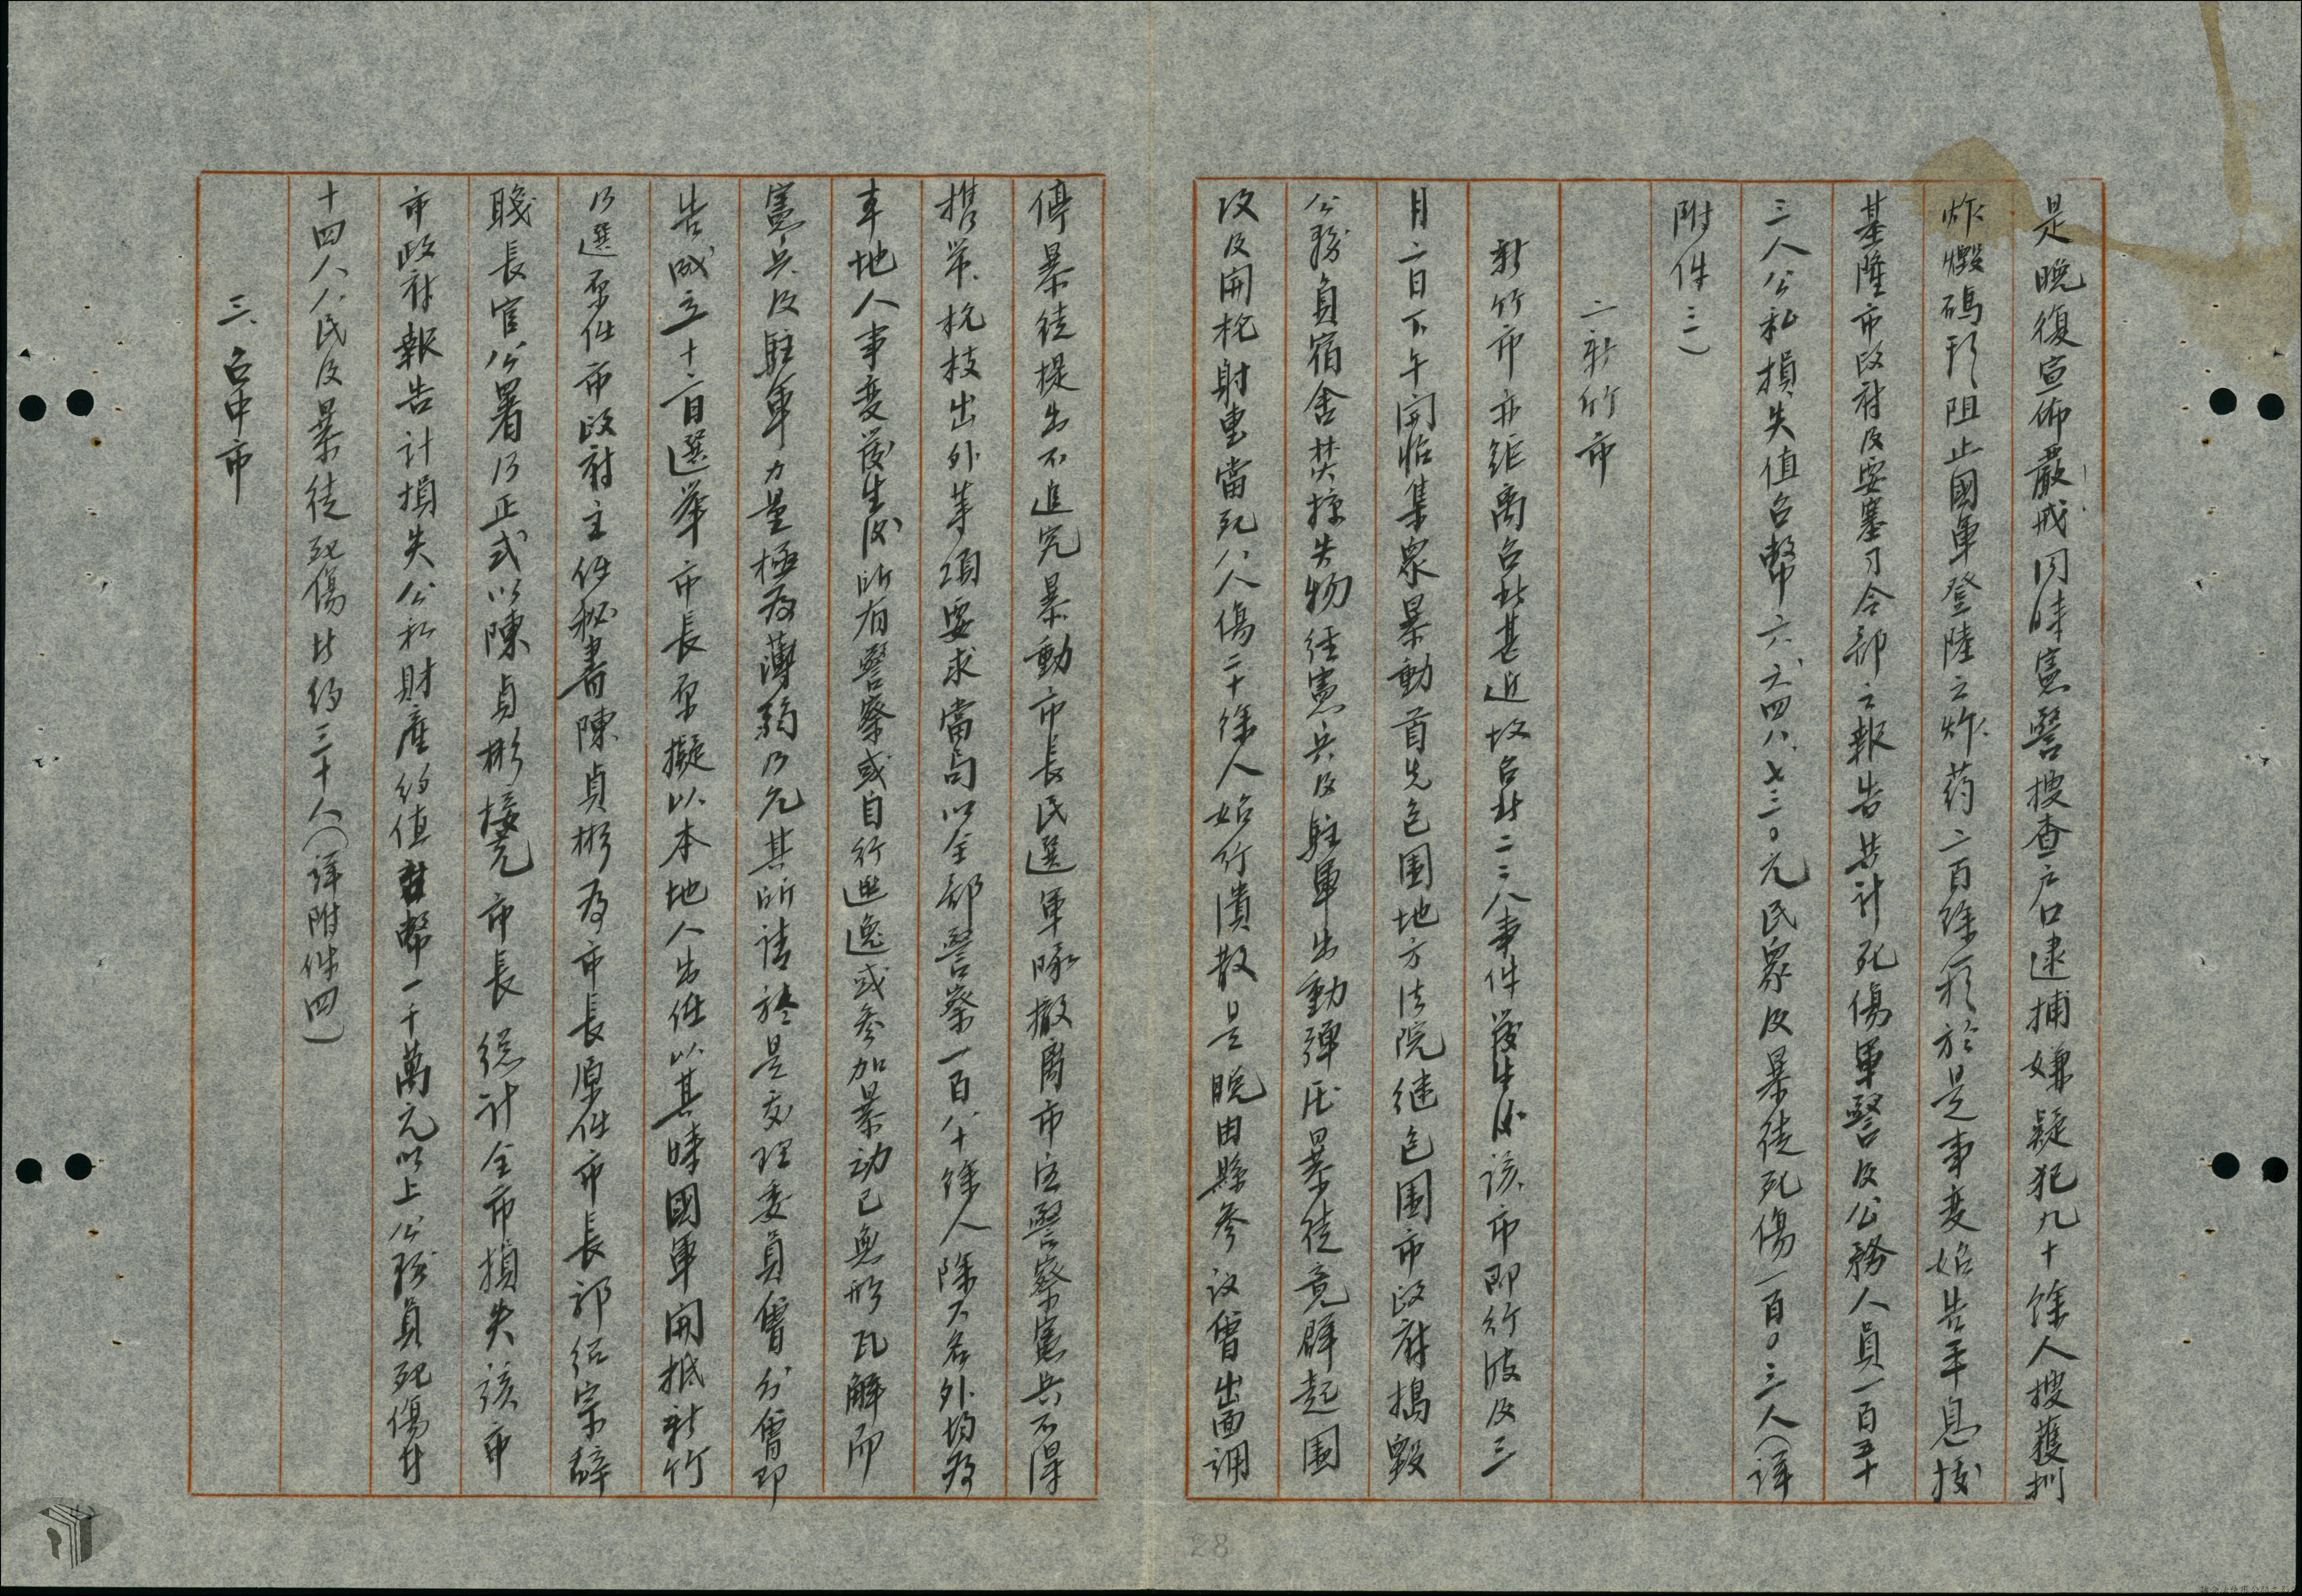 是晚復宣佈嚴戒同時憲警搜查户口逮捕嫌疑犯九十餘人搜獲
炸燬碼頭阻止國軍登陸之炸药二百餘箱於是事変始告平息按
基隆市政府及要塞司令部之報告共計死傷軍警及公務人員一百五十
三人公私損失值台幣六、六四八、七三〇元民眾及暴徒死傷一百〇三人(詳
附件三)
二新竹市
新竹市亦距离台北甚近故台北二二八事件發生後該市即行波及三
月二日下午開始集眾暴動首先包围地方法院继包围市政府搗毀
公務員宿舍焚掠失物经憲兵及駐軍出動彈压暴徒竟群起围
攻及開枪射击當死八人傷二十餘人始行潰散是晚由縣參议會出面調
停暴徒提出不追究暴動市長民選軍隊撤离市區警察憲兵不得
携带枪枝出外等項要求當局以全部警察一百八十餘人除六名外均為
本地人事変發生後所有警察或自行逃逸或參加暴动已無形瓦解而
憲兵及駐軍力量極為薄弱乃允其所請於是处理委員會分會即
告成立十二日選举市長原擬以本地人出任以其時國軍開抵新竹
乃選原任市政府主任秘書陳貞彬為市長原任市長郭紹宗辞
職長官公署乃正式以陳貞彬接充市長總計全市損失該市
市政府報告計損失公私財產约值台幣一千萬元以上公務員死傷廿
十四人人民及暴徒死傷共约三十人(詳附件四)
三、台中市
28